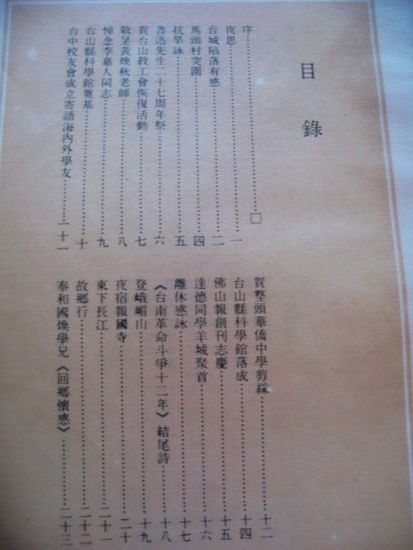 目錄
序……………□
夜思……………一
台城陷落有感……………二
馬頭村突圍……………四
抗旱詠……………五
魯迅先生二十七周年祭……………六
賀台山教工會恢復活動……………七
敬呈黃煥秋老師……………八
悼念李嘉人同志……………九
台山縣科學館奠基……………十
台中校友會成立寄語海內外學友……………二十一
賀整頭華僑中學剪綵……………十二
台山縣科學館落成……………十四
佛山報創刊志慶……………十五
達德同學羊城聚首……………十六
離休感詠……………十七
《台南革命斗爭十二年》結尾詩……………十八
登峨嵋山……………十九
夜宿報國寺……………二十
東下長江……………二十一
故鄉行……………二十二
奉和國煥學兄《回鄉懷感》……………二十三